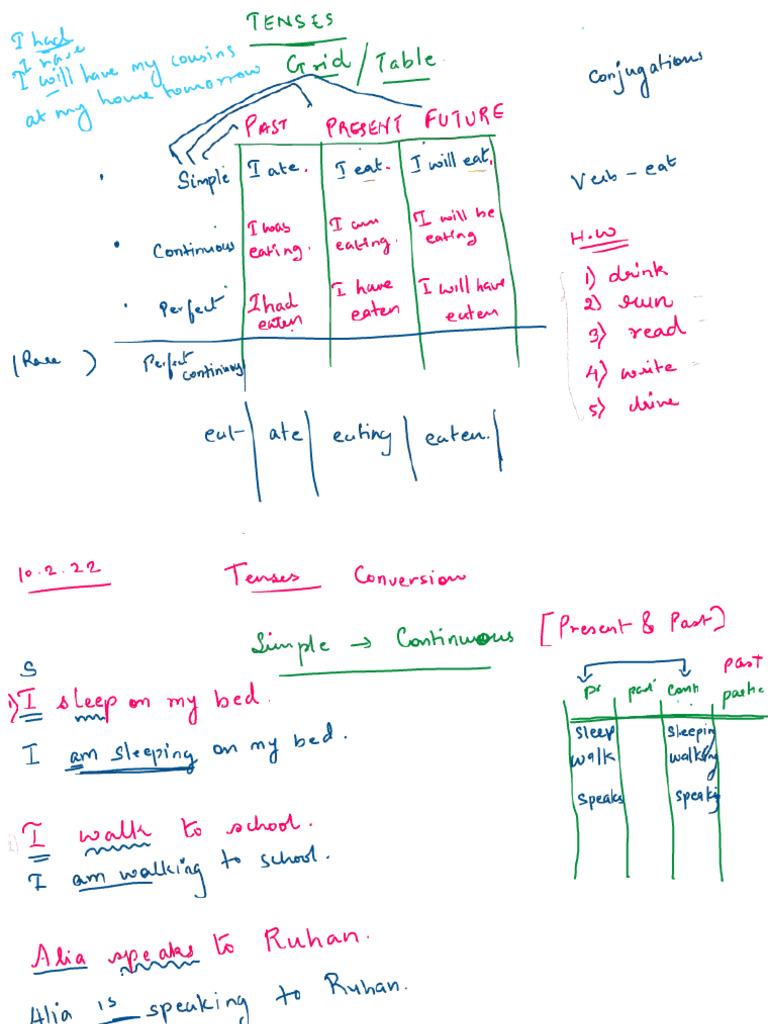 TENSES
Grid / Table
I had
I have
I will have my cousins
at my home tomorrow
Conjugations
PAST PRESENT FUTURE
Simple I ate. I eat. I will eat.
Verb - eat
Continuous I was eating. I am eating. I will be eating
Perfect I had eaten I have eaten I will have eaten
(Rare) Perfect continuous
H.W
1) drink
2) run
3) read
4) write
5) drive
eat ate eating eaten.
10.2.22 Tenses Conversion
Simple → Continuous [Present & Past]
S
1) I sleep on my bed.
I am sleeping on my bed.
I walk to school.
I am walking to school.
Alia speaks to Ruhan.
Alia is speaking to Ruhan.
pr past cont past partic
sleep sleepin
walk walking
speaks speakig